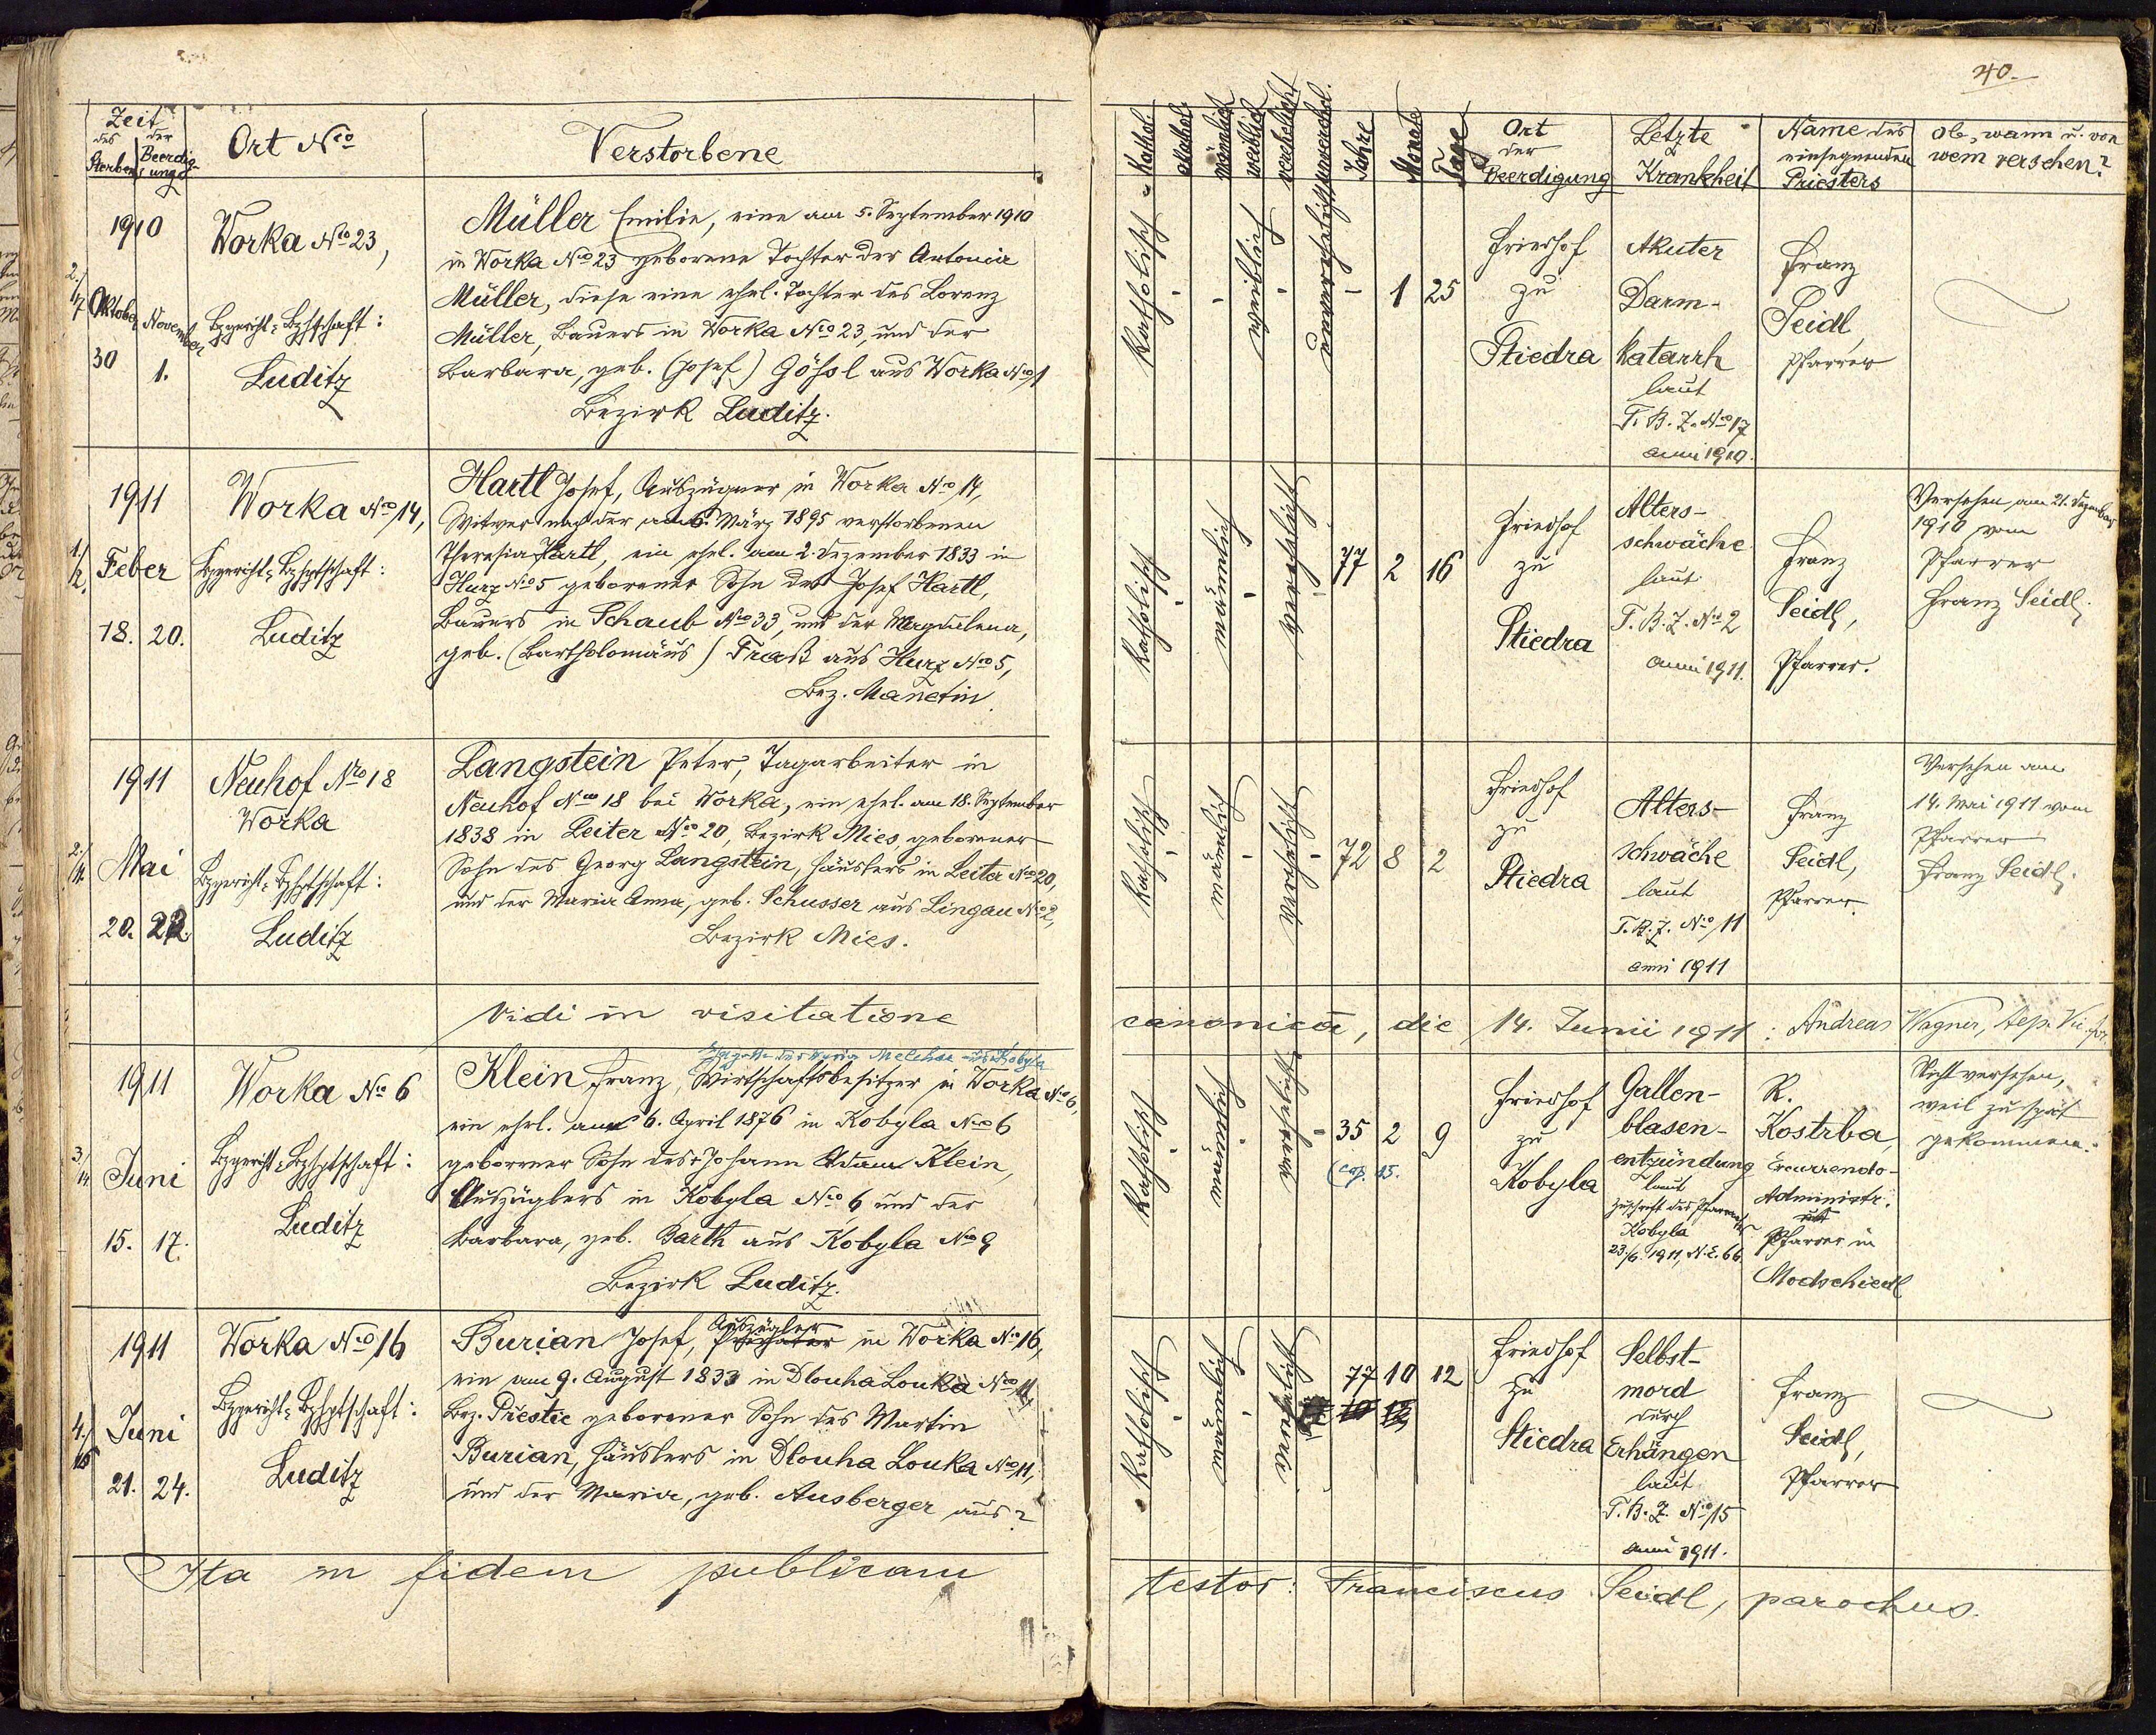 40.
Zeit
des
der
Sterbens
Beerdig-
ungs
Ort Nro
Verstorbene
Kathol.
akathol.
männlich
weiblich
verehelicht
unverehel.
Jahre
Monate
Tage
Ort
der
Beerdigung
Letzte
Krankheit
Name des
einsegnenden
Priesters
ob, wann u. von
wem versehen?
1910
2./7
Oktober
November
30
1.
Worka No 23,
Bzgericht, Bzhptschaft:
Luditz
Müller Emilie, eine am 5. September 1910
in Worka No 23 geborene Tochter der Antonia
Müller, diese eine ehel. Tochter des Lorenz
Müller, Bauers in Worka Nro 23, und der
Barbara, geb. (Josef) Gößl aus Worka Nro 1
Bezirk Luditz.
Katholisch
-
-
weiblich
-
unverehelicht
-
1
25
Friedhof
zu
Stiedra
Akuter
Darm-
katarrh
laut
T. B. Z. Nro 17
anni 1910.
Franz
Seidl,
Pfarrer
1911
1./2.
Feber
18.
20.
Worka Nro 14,
Bzgericht, Bzhptschaft:
Luditz
Hartl Josef, Auszügner in Worka Nro 14,
Witwer nach der am 6. März 1895 verstorbenen
Theresia Hartl, ein ehel. am 2. Dezember 1833 in
Hurz Nro 5 geborener Sohn des Josef Hartl,
Bauers in Schaub Nro 33, und der Magdalena,
geb. (Bartholomäus) Fraß aus Hurz Nro 5,
Bez. Manetin.
Katholisch
-
männlich
-
verehelicht
-
77
2
16
Friedhof
zu
Stiedra
Alters-
schwäche
laut
T. B. Z. No 2
anni 1911.
Franz
Seidl,
Pfarrer.
Versehen am 21. Dezember
1910 vom
Pfarrer
Franz Seidl.
1911
2./11.
Mai
20.
22.
Neuhof Nro 18
Worka
Bzgericht, Bzhptschaft:
Luditz
Langstein Peter, Tagarbeiter in
Neuhof Nro 18 bei Worka, ein ehel. am 18. September
1838 in Leiter No 20, Bezirk Mies geborener
Sohn des Georg Langstein, Häuslers in Leiter Nro 20,
und der Maria Anna, geb. Schusser aus Lingau No 2,
Bezirk Mies.
Katholisch
-
männlich
-
verehelicht
-
72
8
2
Friedhof
zu
Stiedra
Alters-
schwäche
laut
T. B. Z. Nro 11
anni 1911
Franz
Seidl,
Pfarrer.
Versehen am
14. Mai 1911 vom
Pfarrer
Franz Seidl.
Vidi in visitatione canonica, die 14. Junii 1911: Andreas Wagner,
1911
3./14
Juni
15.
17.
Worka No 6
Bzgericht, Bzhptschaft:
Luditz
Ehegatte der Maria Melchar aus Kobyla
Klein Franz, Wirtschaftsbesitzer in Worka No 6,
ein ehel. am 6. April 1876 in Kobyla Nro 6
geborener Sohn des Johann Adam Klein,
Auszüglers in Kobyla Nro 6 und der
Barbara, geb. Barth aus Kobyla Nro 9
Bezirk Luditz.
Katholisch
-
männlich
-
verehelicht
-
35
2
9
Friedhof
zu
Kobyla
Gallen-
blasen-
entzündung
laut
Zuschrift des Pfarramtes
Kobyla
23./6. 1911, N. E. 66.
R.
Kostrba,
Excurrendo-
Administr.
Pfarrer in
Modschiedl
Nicht versehen,
weil zu spät
gekommen.
1911
4./15
Juni
21.
24.
Worka Nro 16
Bzgericht, Bzhptschaft:
Luditz
Auszügler
Burian Josef, in Worka No 16,
ein am 9. August 1833 in Dlouha Louka Nro 11,
Bez. Přestic geborener Sohn des Martin
Burian, Häuslers in Dlouha Louka Nro 11,
und der Maria, geb. Ausberger aus ?
Katholisch
-
männlich
-
verehelicht
77
10
12
Friedhof
zu
Stiedra
Selbst-
mord
durch
Erhängen
laut
T. B. Z. Nro 15
anni 1911.
Franz
Seidl,
Pfarrer
Ita in fidem publicam testor: Franciscus Seidl, parochus.